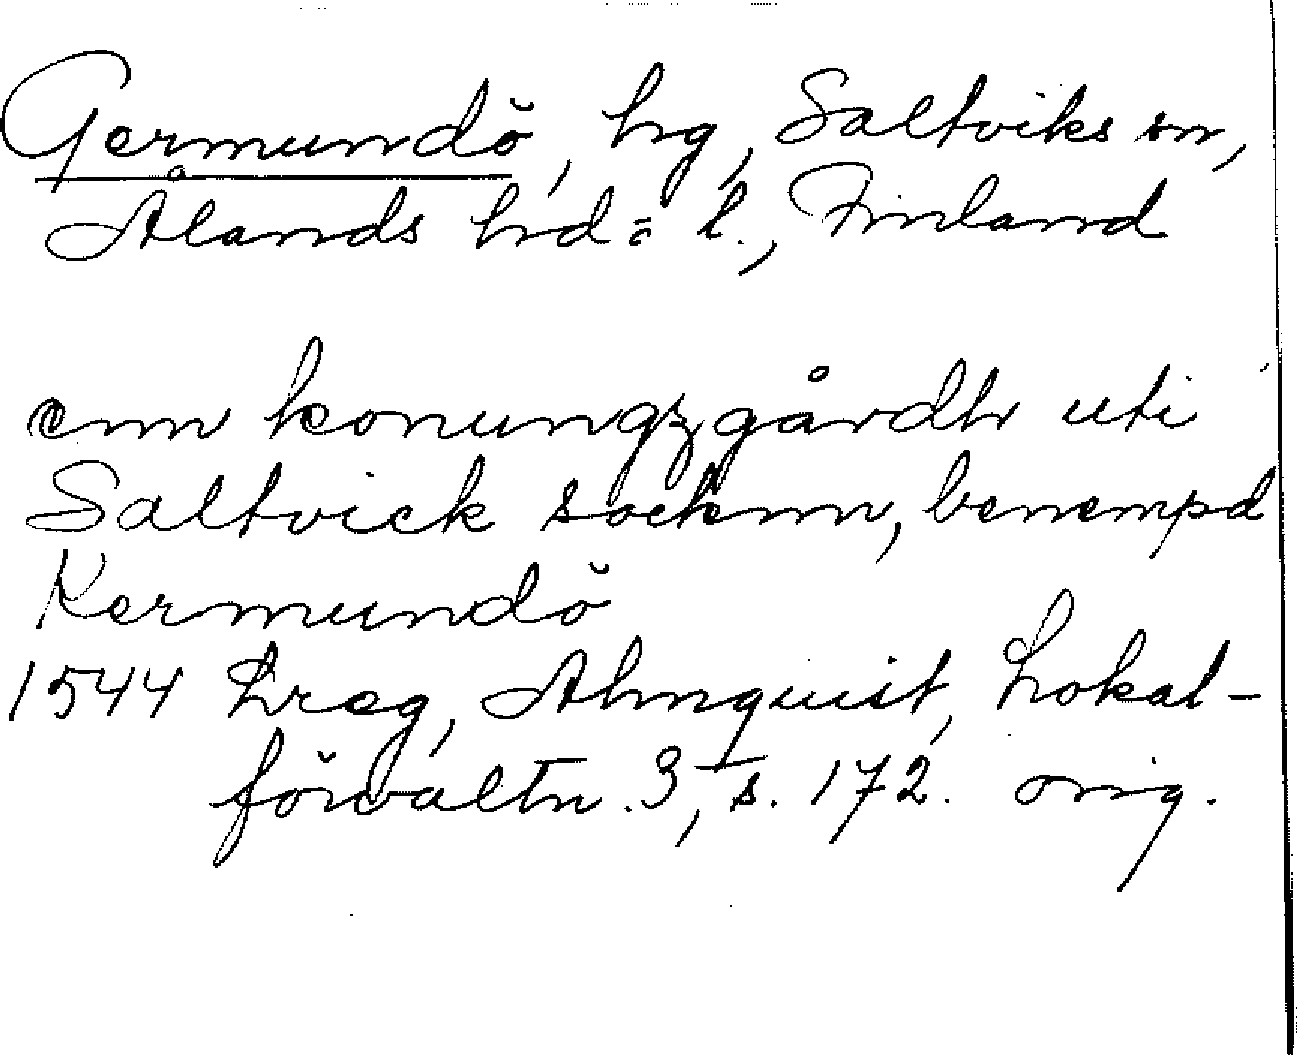 Germundö, hg, Saltviks sn,
Ålands hd o. l., Finland
enn konungzgårdh uti
Saltvick socknn, benempd
Kermundö
1544 Lreg, Almquist, Lokal-
förvaltn. 3, s. 172. orig.